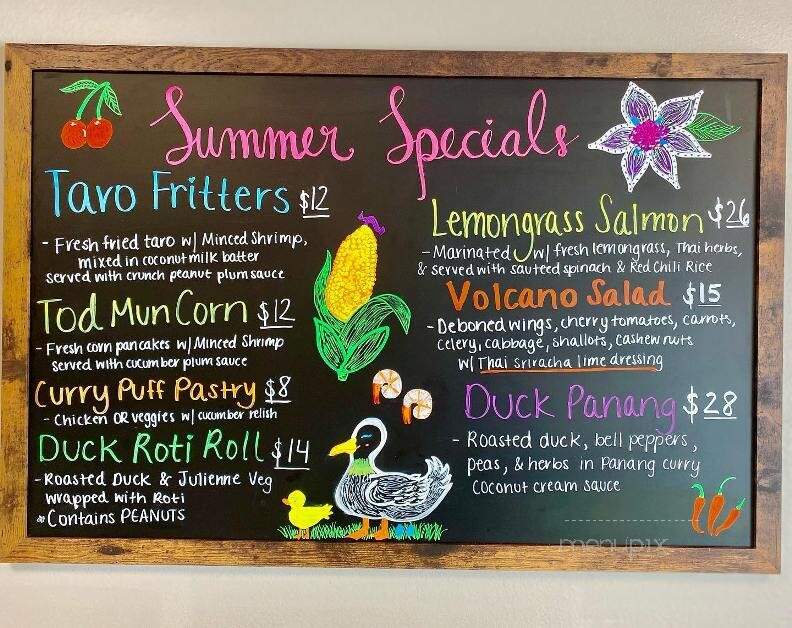 Summer Specials
Taro Fritters $12
- Fresh fried taro w/ Minced Shrimp,
mixed in coconut milk batter
served with crunch peanut plum sauce
Tod Mun Corn $12
- Fresh corn pancakes w/ Minced Shrimp
served with cucumber plum sauce
Curry Puff Pastry $8
- Chicken OR veggies w/ cucumber relish
Duck Roti Roll $14
- Roasted Duck & Julienne Veg
wrapped with Roti
* Contains PEANUTS
Lemongrass Salmon $26
- Marinated w/ fresh lemongrass, Thai herbs,
& served with sauteed spinach & Red Chili Rice
Volcano Salad $15
- Deboned wings, cherry tomatoes, carrots,
celery, cabbage, shallots, cashew nuts
w/ Thai Sriracha lime dressing
Duck Panang $28
- Roasted duck, bell peppers,
peas, & herbs in Panang curry
coconut cream sauce
menupix